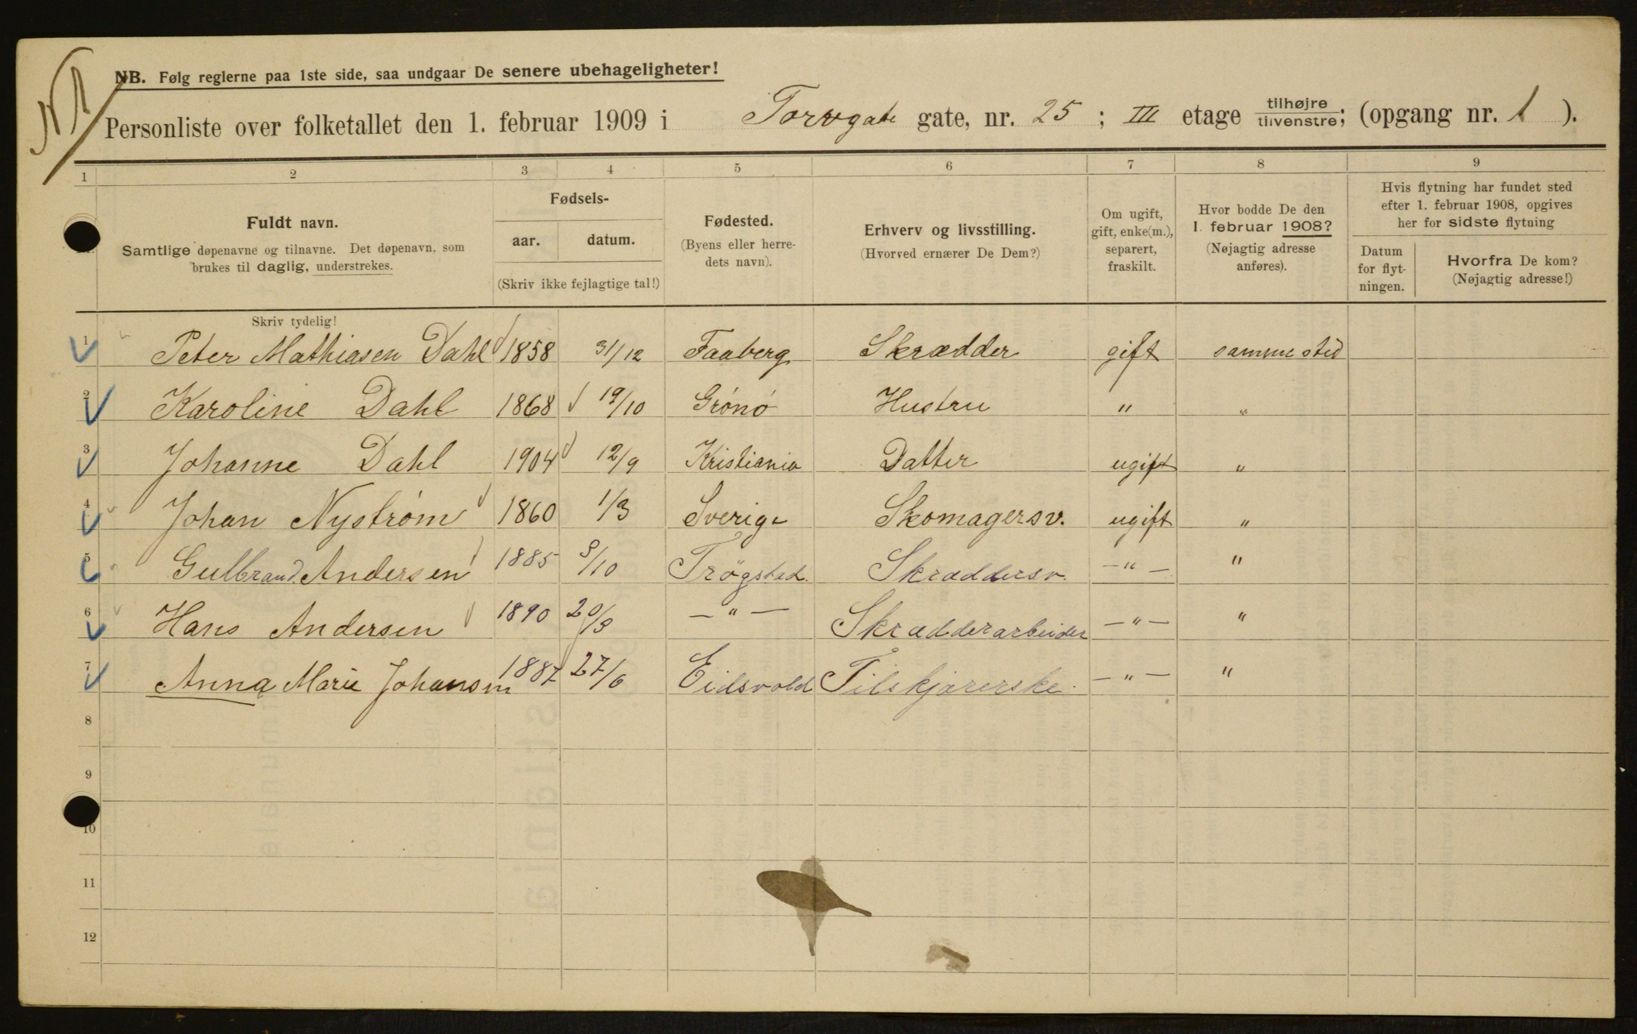 NB. Følg reglerne paa 1ste side, saa undgaar De senere ubehageligheter!
Personliste over folketallet den 1. februar 1909 i Torvgate gate, nr. 25 ; III etage tilhøjre tilvenstre; (opgang nr. 1 ).
1 2 3 4 5 6 7 8 9
Fuldt navn.
Samtlige døpenavne og tilnavne. Det døpenavn, som
brukes til daglig, understrekes.
Fødsels-
aar. datum.
(Skriv ikke fejlagtige tal!)
Fødested.
(Byens eller herre-
dets navn).
Erhverv og livsstilling.
(Hvorved ernærer De Dem?)
Om ugift,
gift, enke(m.),
separert,
fraskilt.
Hvor bodde De den
1. februar 1908?
(Nøjagtig adresse
anføres).
Hvis flytning har fundet sted
efter 1. februar 1908, opgives
her for sidste flytning
Datum
for flyt-
ningen.
Hvorfra De kom?
(Nøjagtig adresse!)
Skriv tydelig!
1 Peter Mathiasen Dahl 1858 31/12 Faaberg Skrædder gift samme sted
2 Karoline Dahl 1868 19/10 Grónó Hustru " "
3 Johanne Dahl 1904 12/9 Kristiania Datter ugift "
4 Johan Nystróm 1860 1/3 Sverige Skomagersv. ugift "
5 Gulbrand Andersen 1885 9/10 Trøgstad. Skræddersv. —"— "
6 Hans Andersen 1890 20/3 —"— Skrædderarbeider —"— "
7 Anna Marie Johansen 1887 27/6 Eidsvold Tilskjærerske. —"— "
8
9
10
11
12